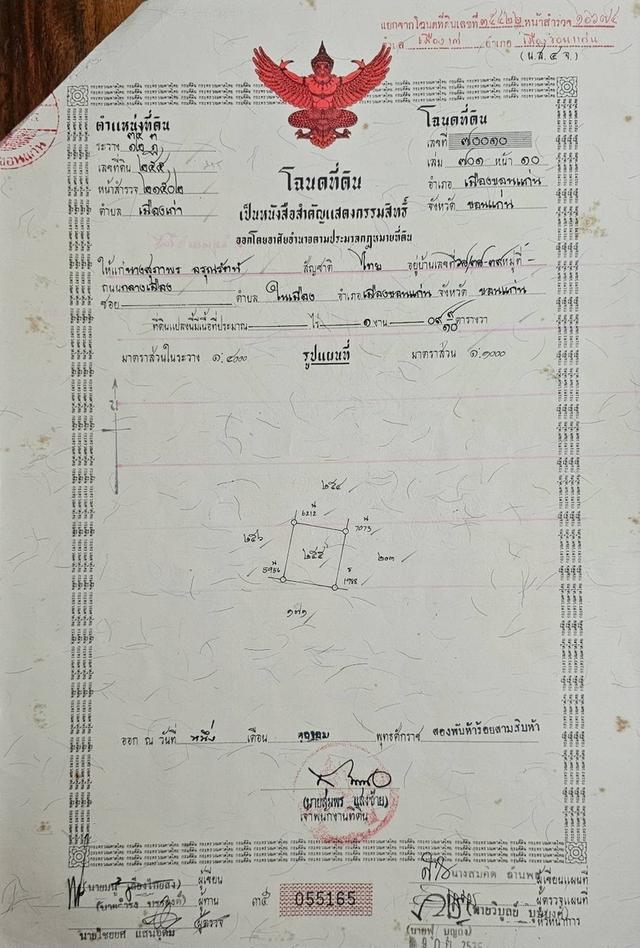 แยกจากโฉนดที่ดินเลขที่ ๒๕๔๒๒ หน้าสำรวจ
ตำบล เมืองเก่า อำเภอ เมืองขอนแก่น
(น.ส.๔ จ.)
ตำแหน่งที่ดิน
ระวาง
เลขที่ดิน ๒๕๕
หน้าสำรวจ ๒๑๕๐๒
ตำบล เมืองเก่า
โฉนดที่ดิน
เลขที่ ๗๐๐๑๐
เล่ม ๗๐๑ หน้า ๑๐
อำเภอ เมืองขอนแก่น
จังหวัด ขอนแก่น
โฉนดที่ดิน
เป็นหนังสือสำคัญแสดงกรรมสิทธิ์
ออกโดยอาศัยอำนาจตามประมวลกฎหมายที่ดิน
ให้แก่ นางสุภาพร อรุณรักษ์ สัญชาติ ไทย อยู่บ้านเลขที่ หมู่ที่ -
ถนน กลางเมือง
ซอย ตำบล ในเมือง อำเภอ เมืองขอนแก่น จังหวัด ขอนแก่น
ที่ดินแปลงนี้มีเนื้อที่ประมาณ ไร่ ๑ งาน ๐๙ ๘/๑๐ ตารางวา
มาตราส่วนในระวาง ๑:๔๐๐๐ รูปแผนที่ มาตราส่วน ๑:๑๐๐๐
น
๒๕๔
น 6212
น 7073
๒๕๖
๒๕๕
๒๐๓
น 5956
ร 1988
๑๗๑
ออก ณ วันที่ หนึ่ง เดือน ตุลาคม พุทธศักราช สองพันห้าร้อยสามสิบห้า
(นายสุนพร แสงชัย)
เจ้าพนักงานที่ดิน
ผู้เขียน
ผู้ทาน
ผู้ตรวจ
นายไชยยศ แสนอุดม
ต๕ 055165
นางสมคิด ผู้เขียนแผนที่
(นายวิบูลย์ บุญยงค์) ผู้ตรวจแผนที่
หัวหน้าการ